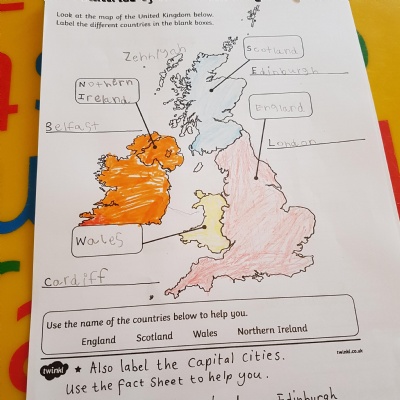 Look at the map of the United Kingdom below.
Label the different countries in the blank boxes.
Scotland
Edinburgh
Nothern
Ireland
England
Belfast
London
Wales
Cardiff
Use the name of the countries below to help you.
England Scotland Wales Northern Ireland
twinkl.co.uk
twinkl
★ Also label the Capital Cities.
Use the fact sheet to help you.
Edinburgh